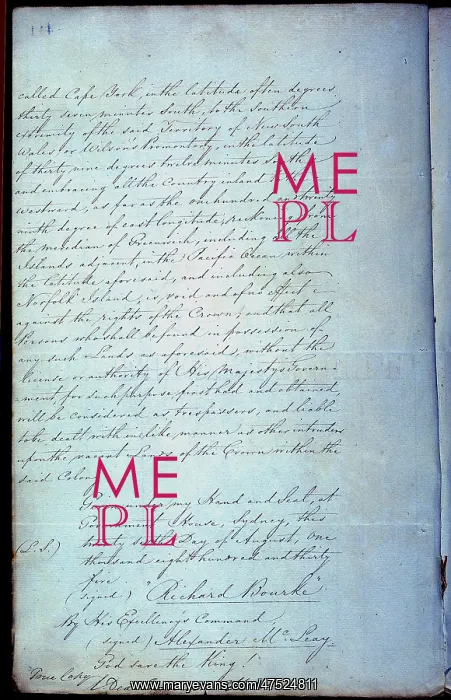 called Cape York, in the latitude of ten degrees
thirty seven minutes South, to the Southern
extremity of the said Territory of New South
Wales or Wilsons Promontory, in the latitude
of thirty nine degrees twelve minutes
and embracing all the Country inland
Westward, as far as the one hundred and twenty
ninth degree of east longitude, reckoning from
the meridian of Greenwich, including all the
Islands adjacent, in the Pacific Ocean within
the latitude aforesaid, and including also
Norfolk Island, is void and of no effect
against the rights of the Crown; and that all
Persons who shall be found in possession of
any such Lands as aforesaid, without the
license or authority of His Majesty's Govern
-ment for such purpose first had and obtained,
will be considered as trespassers, and liable
to be dealt with in like manner as other intruders
upon the vacant of the Crown within the
said Colony
my Hand and Seal, at
House, Sydney, this
Day of August, One
thousand eight hundred and thirty
(L.S.)
five
(signed) "Richard Bourke"
By His Excellency's Command,
(signed) Alexander McLeay.
God save the King!
True Copy
ME
PL
ME
PL
www.maryevans.com/47524811